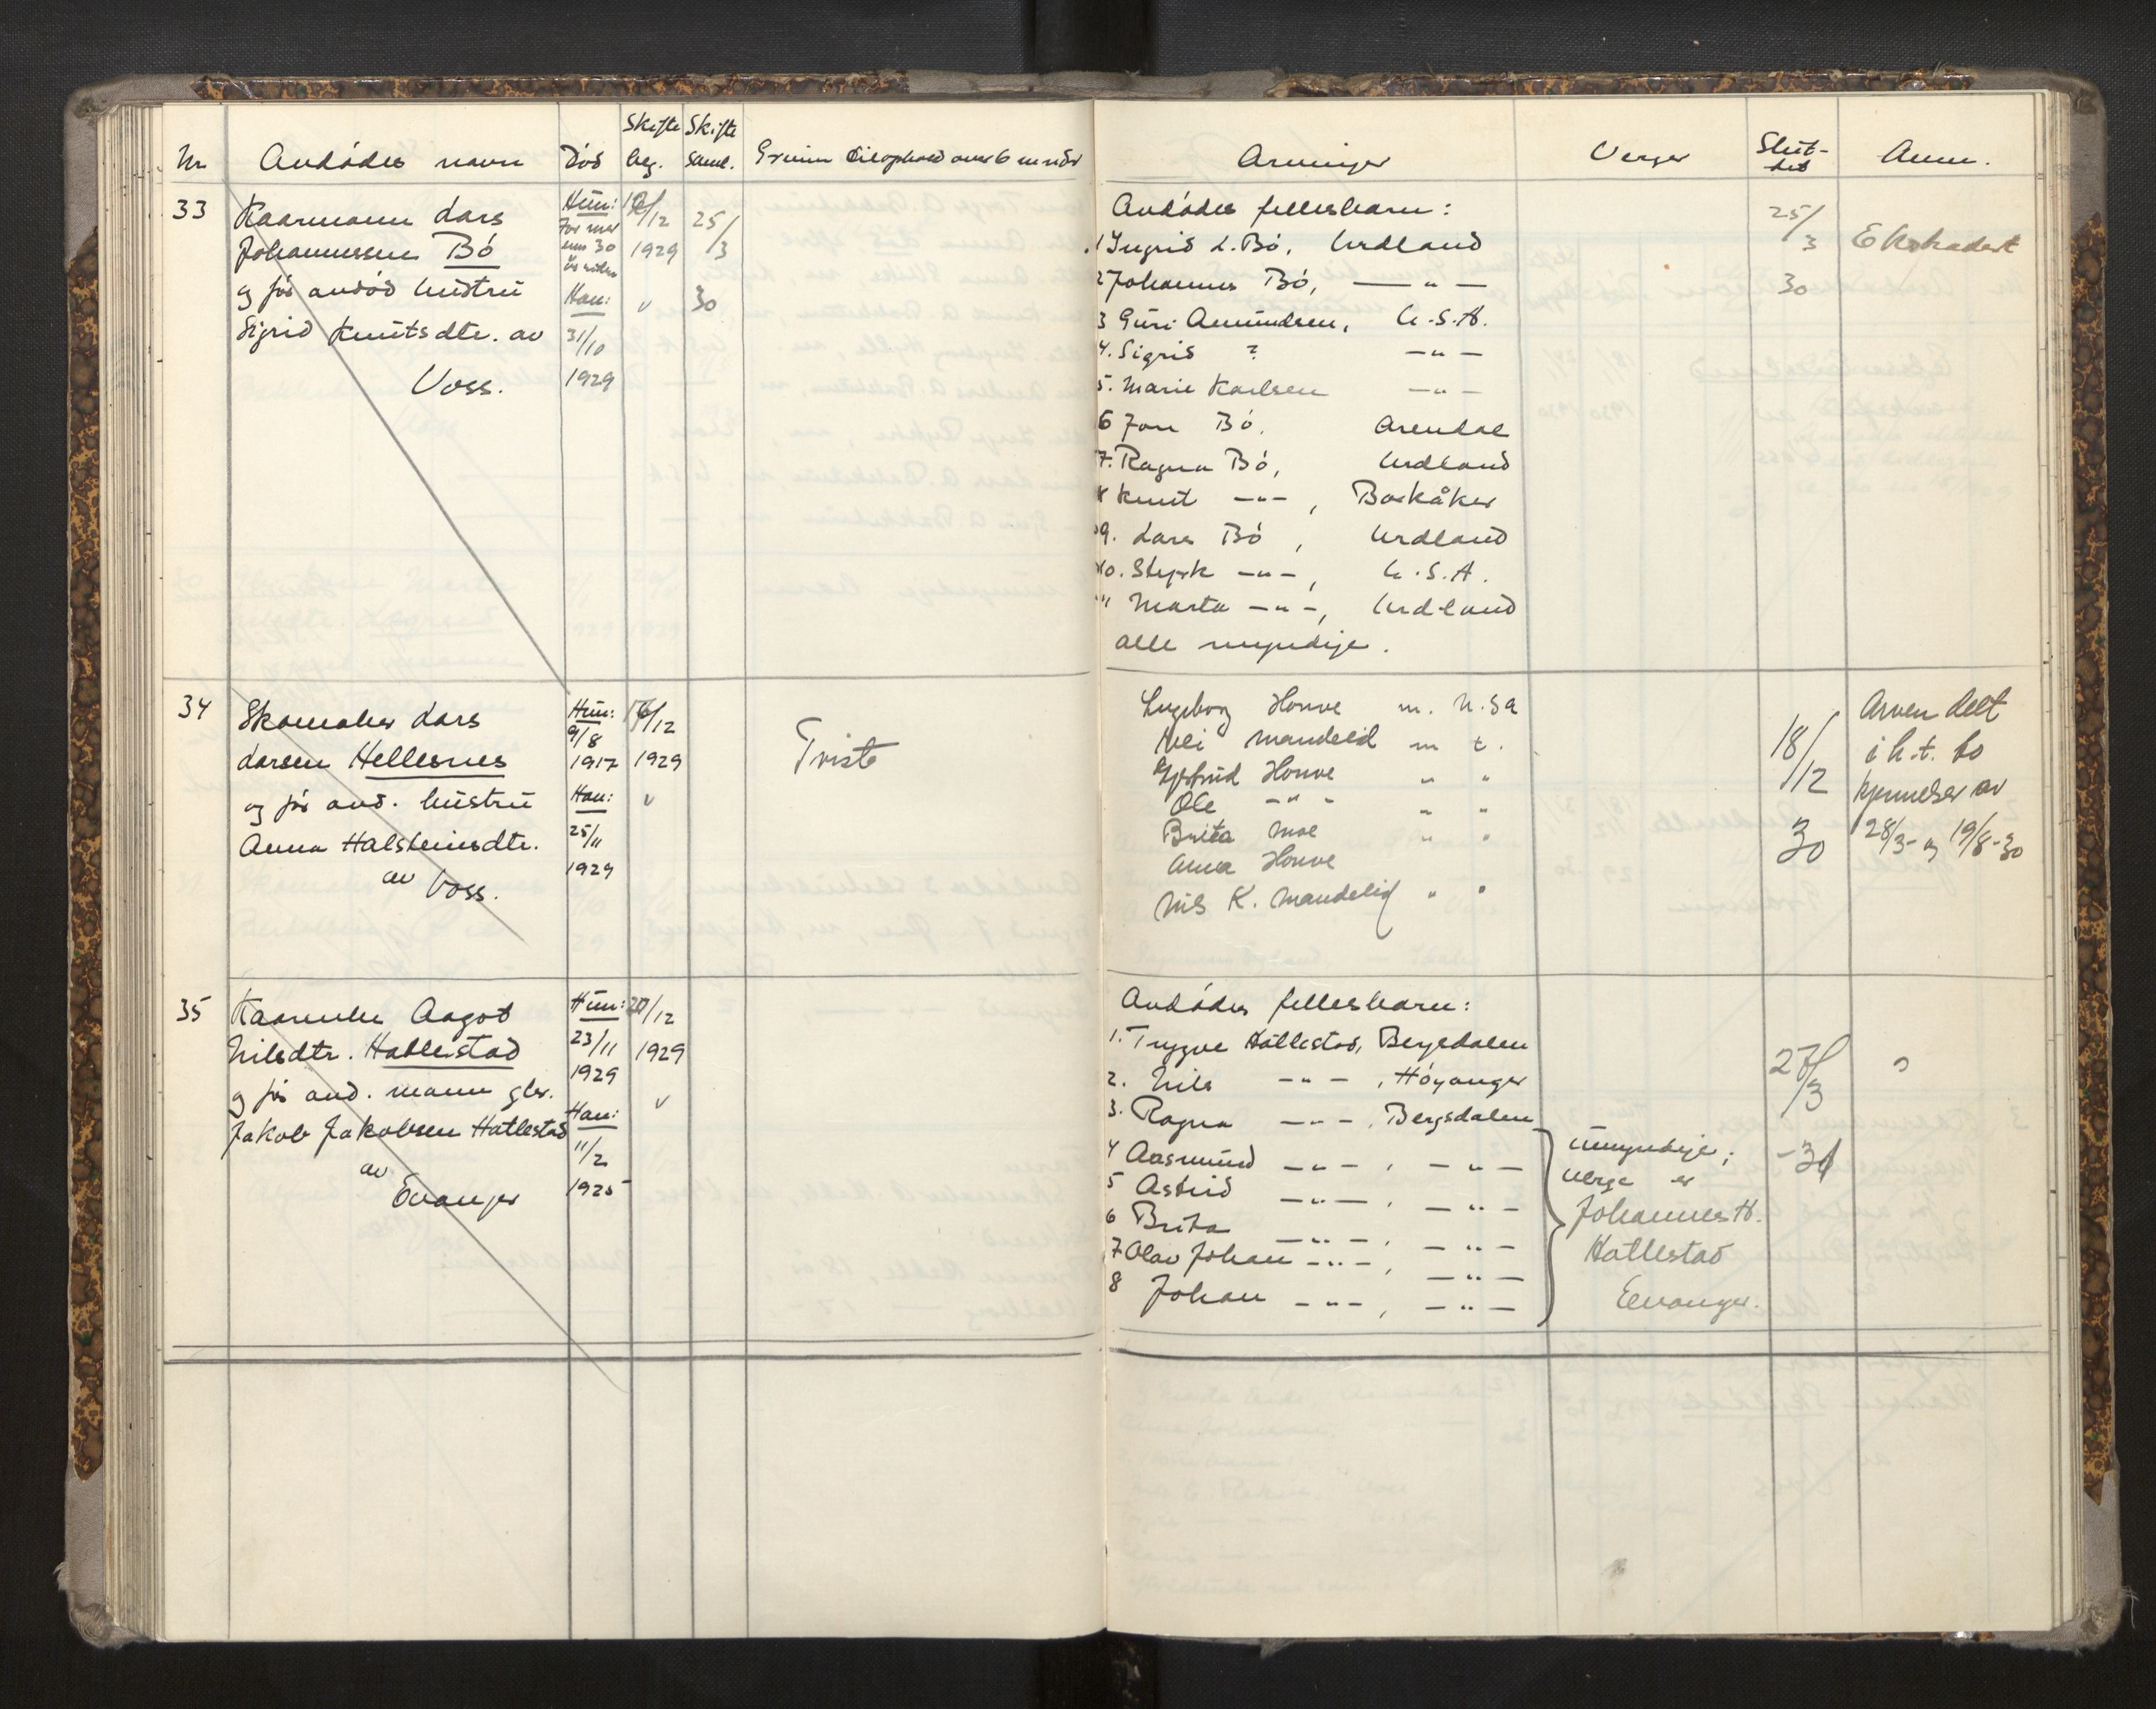 Nr Avdødes navn Død Skifte beg. Skifte saml. Grunn til ophold over 6 mndr
33 Kaarmann Lars Hun: 12/12 25/3
Johannessen Bö For mer enn 30 år siden 1929
og før avdød hustru Han: v 30
Sigrid Knutsdtr. av 31/10
Voss. 1929
34 Skomaker Lars Hun: 16/12
Larsen Hellesnes 9/8 1917 1929 Tvist
og før avd. hustru Han: v
Anna Halsteinsdtr. 25/11
av Voss. 1929
35 Kaarenke Aagot Hun: 20/12
Nilsdtr. Hatlestad 23/11 1929
og før avd. mann gbr. 1929 v
Jakob Jakobsen Hatlestad Han:
av 11/2
Evanger 1925
Arvinger Verger Slut-tet Anm.
Avdødes fellesbarn: 25/3
1 Ingrid L. Bö, Urdland Ekstradert
2 Johannes Bö, — " — 30
3 Guri Amundsen, U.S.A.
4. Sigrid ? — " —
5. Marie Karlsen — " —
6 Jon Bö, Arendal
7. Ragna Bö, Urdland
8 Knut — " — , Boskåker
9. Lars Bö , Urdland
10. Styrk — " — , U.S.A.
11 Marta — " — , Urdland
alle myndige.
Ingeborg Honve m. U.Sa Arven delt
Nils Mandelid m t. 18/12 i h.t. to
Gjertrud Honve " " kjennelser av
Ole — " — " " 30 28/3- og 19/8-30
Brita Moe " "
Anna Honve
Nils K. Mandelid " "
Avdødes fellesbarn:
1. Trygve Hatlestad, Bergsdalen
2. Nils — " — , Høyanger 27/3 "
3. Ragna — " — , Bergsdalen
4 Aasmund — " — , — " — umyndige; -31
5 Astrid — " — , — " — verge er
6 Brita — " — , — " — Johannes H.
7 Olav Johan — " — , — " — Hatlestad
8 Johan — " — , — " — Evanger.